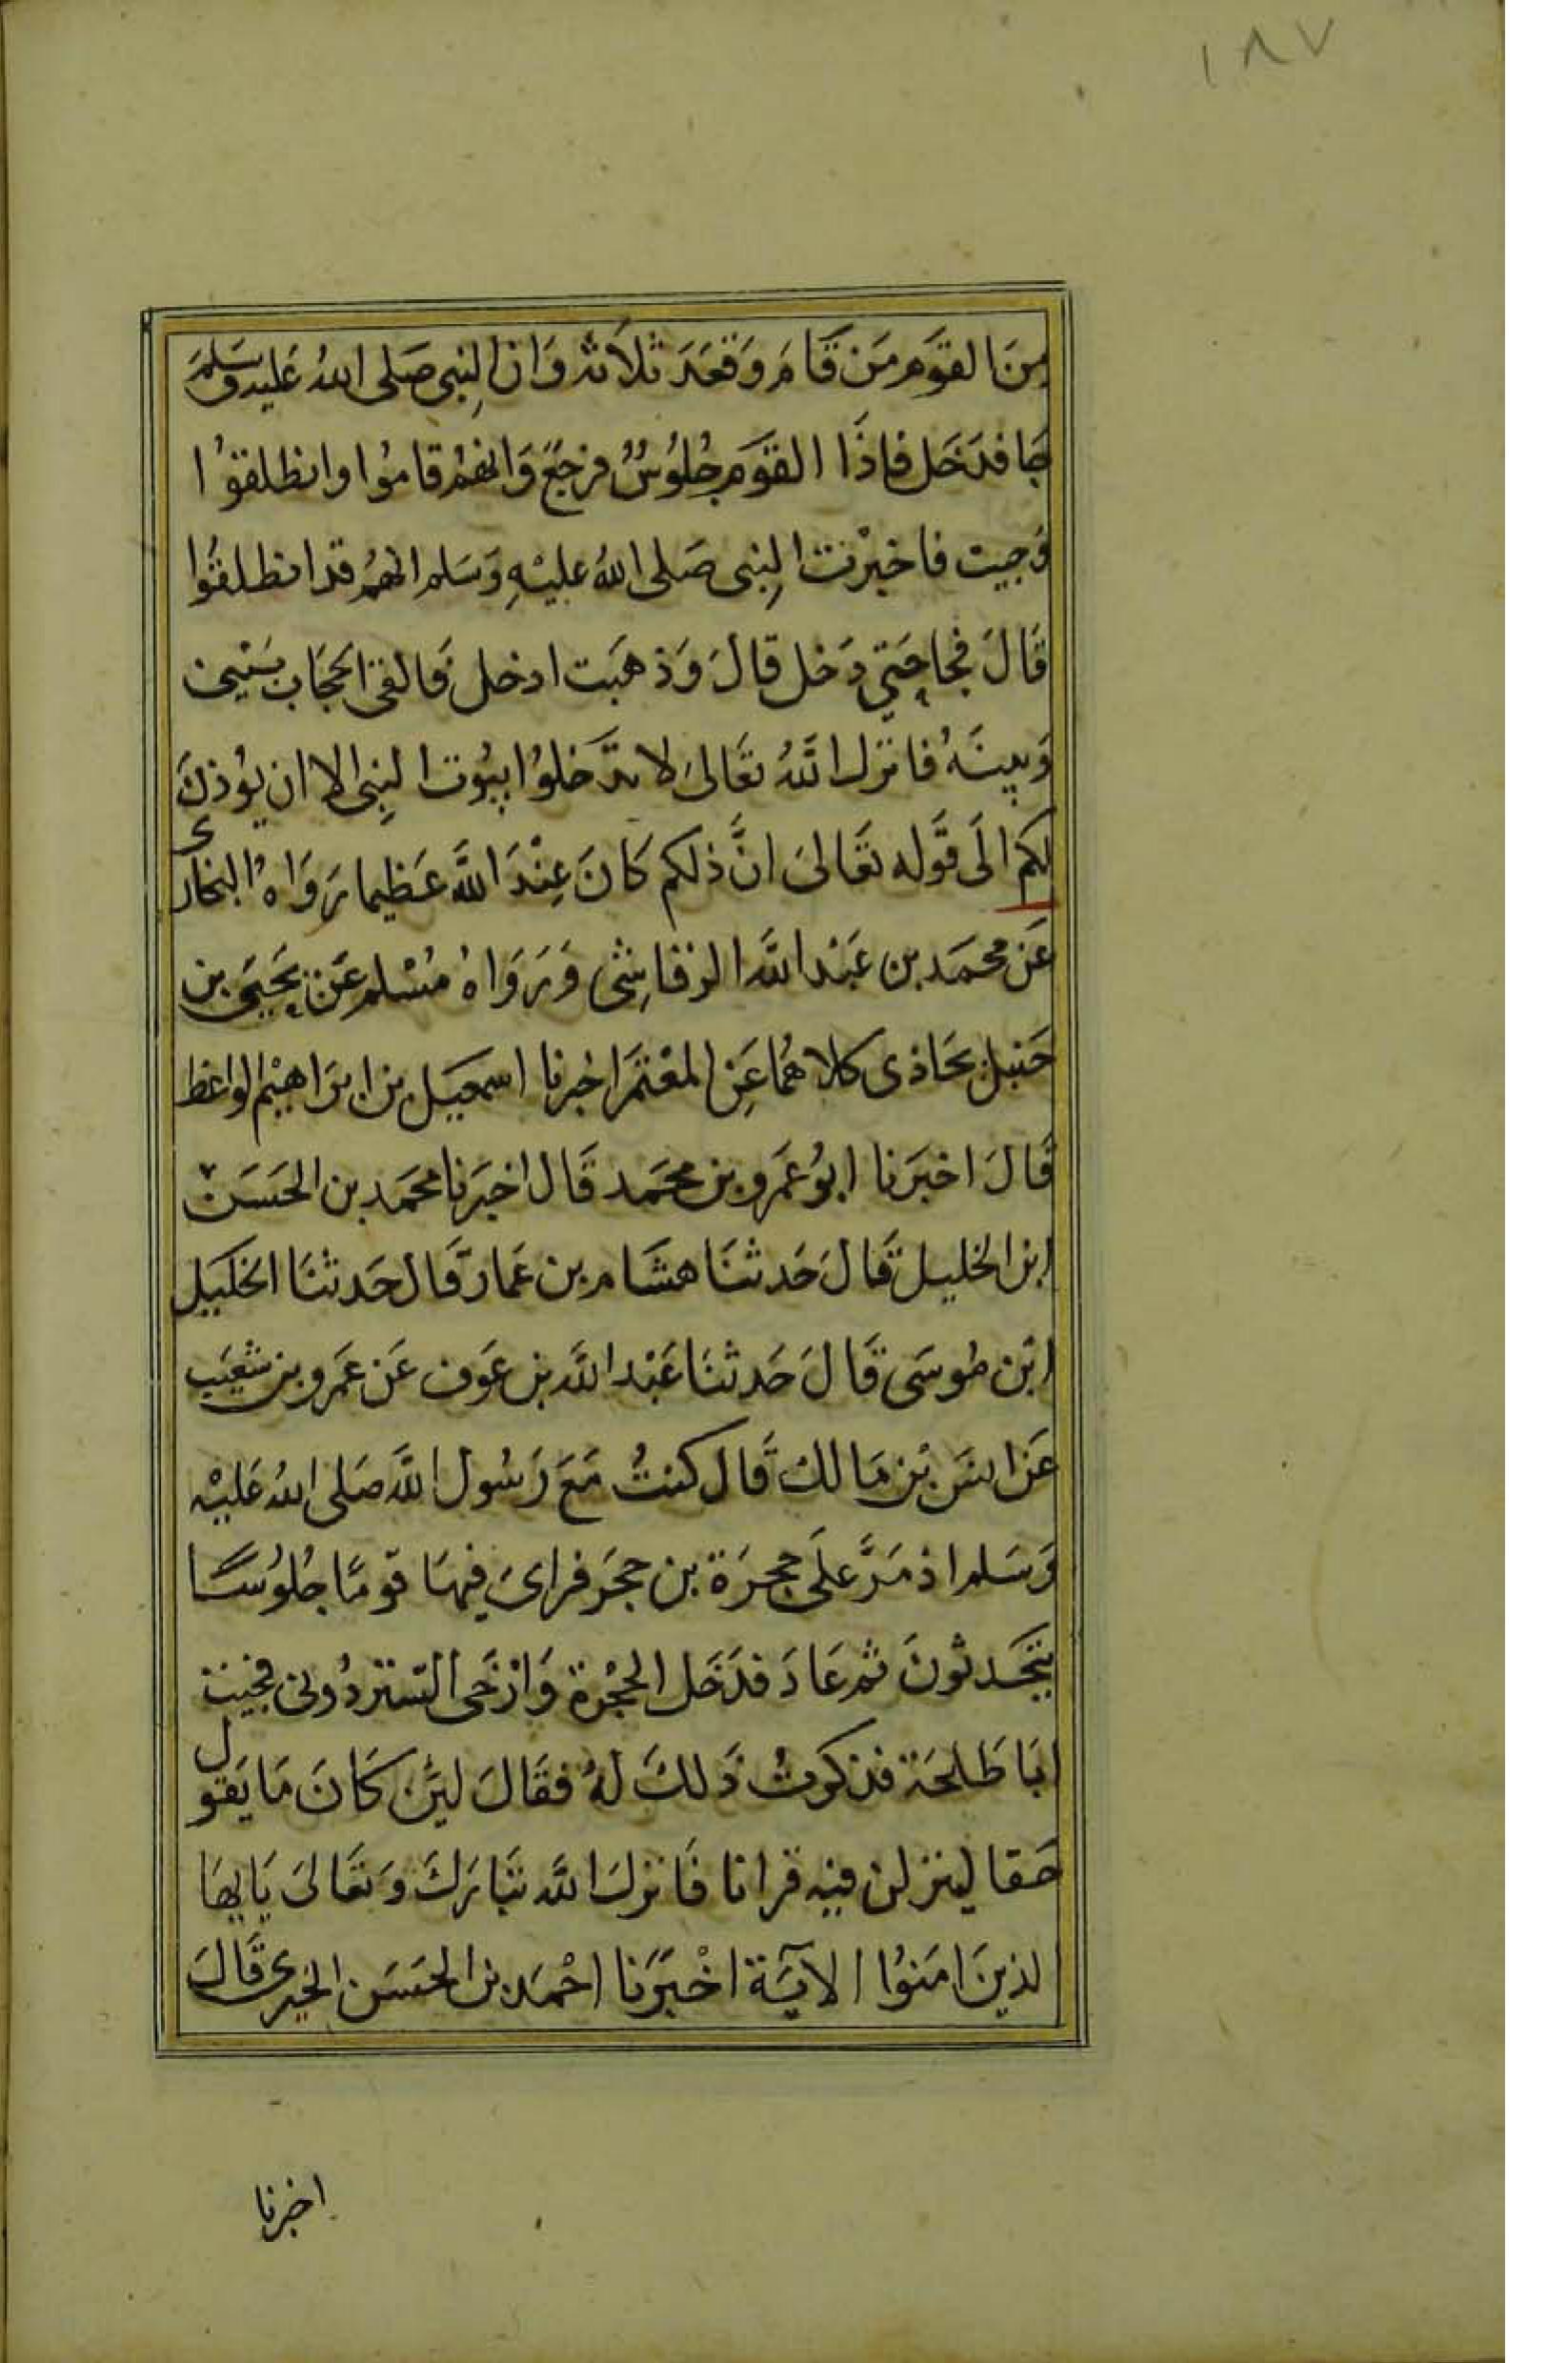 ١٨٧
مِنَ القَوَم مَن قَامَ وَقَعَدَ ثلاَثه وَان النِبى صَلى اللهُ عَليه وسَلمَ
جَا فدَخَل فاذَا القوَم جُلوُسٌ فرجَعَ وَانهمُ قامُوا وانطلقوُا
فجيت فاخبرْت النِبى صَلى اللهُ عليْهِ وَسَلم انهمُ قد انطلقُوا
قَالَ فجا حَتي دَخل قالَ وَذهَبَت ادخل فَالقى الحجَاب بَيْنِى
وَبينَهُ فانزل اللهُ تعَالىَ لا تدَخلوُا بيُوت النِبى الا ان يؤذنَ
لكم الَى قَوله تعَالىَ انَّ ذلكم كَانَ عِنْدَ اللَّه عَظيما رَوَاهُ البخارى
عَن محمَد بن عَبْد اللَّه الرقاشِى وَرَوَاهُ مُسْلم عَن يَحيَى بن
حَنبل بحَاذى كلاهُما عَنِ المعْتمَر اخبرنا اسمعيَل بن ابرَاهيْم الواعظ
قَالَ اخبَرَنا ابوُ عَمرو بن محمَد قَال اخبَرنا محمَد بن الحَسَن
ابن الخليل قَالَ حَدثنَا هشَام بن عَمار قَال حَدثنَا الخليَل
ابْن موسَى قَالَ حَدثنَا عَبْد اللَّه بن عَون عَن عَمرو بن شعَيب
عَن انسَ بْن مَالك قَال كنتُ مَعَ رَسُول اللَّه صَلى اللهُ عَليْه
وَسَلم اذ مَرَّ علَى حجرَة بن حجَر فراىَ فيهَا قومًا جلوُسًا
يتحَدثونَ ثم عَادَ فدَخَل الحجْرة وَارْخَى السَتر دُونى فجيت
ابَا طَلحَة فذكرتُ ذَلكَ لهُ فقَالَ ليَن كَانَ مَا يَقول
حَقا لينزلن فيْه قرانا فَانزلَ اللَّه تبَارَكَ وَتعَالىَ يَايهَا
الذينَ امَنوُا الايَة اخْبَرَنا احْمَد بن الحسَن الحيرى قَالَ
اخبرنا